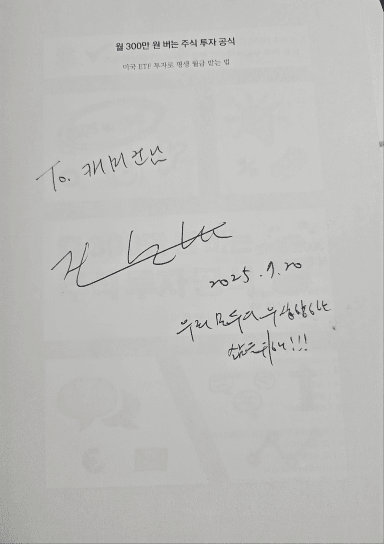 월 300만 원 버는 주식 투자 공식
미국 ETF 투자로 평생 월급 받는 법
To. 캐미언니
2025. 9. 20
우리 모두의 우상향하는
삶을 위해!!!